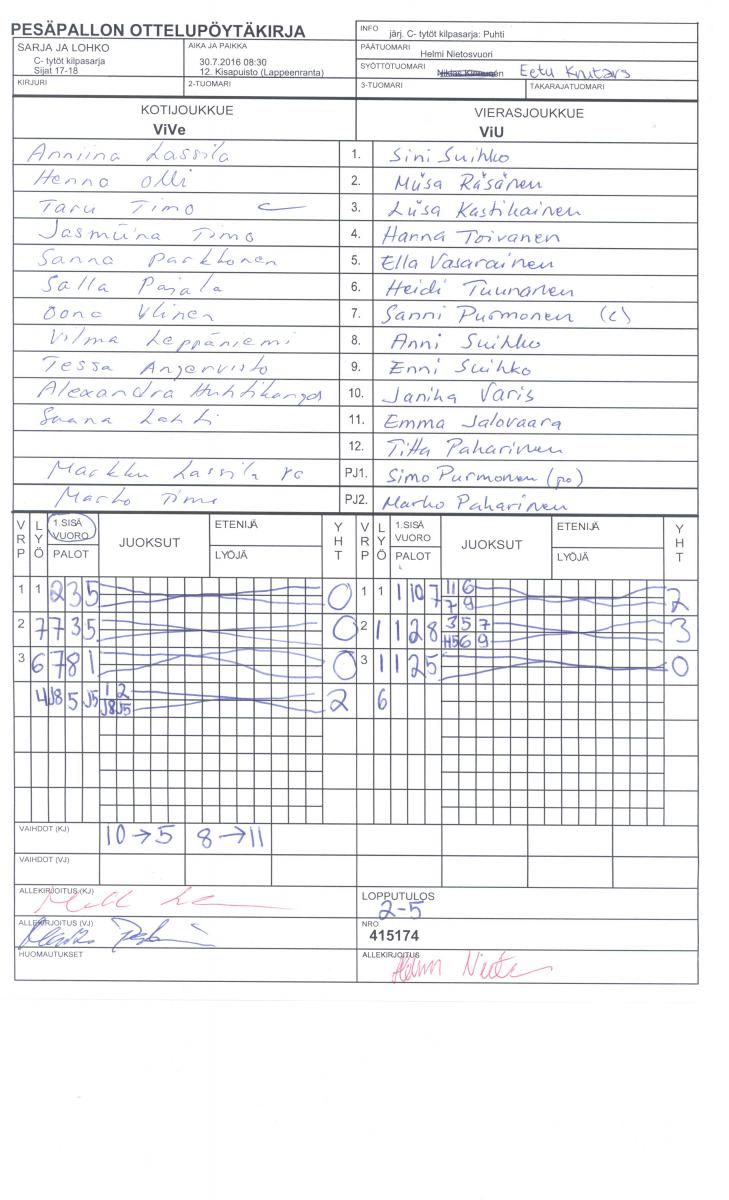 PESÄPALLON OTTELUPÖYTÄKIRJA
INFO järj. C- tytöt kilpasarja: Puhti
SARJA JA LOHKO
C- tytöt kilpasarja
Sijat 17-18
AIKA JA PAIKKA
30.7.2016 08:30
12. Kisapuisto (Lappeenranta)
PÄÄTUOMARI
Helmi Nietosvuori
SYÖTTÖTUOMARI Eetu
KIRJURI 2-TUOMARI 3-TUOMARI TAKARAJATUOMARI
KOTIJOUKKUE VIERASJOUKKUE
ViVe ViU
Anniina Lassila 1. Sini Suihko
Henna Olli 2. Miisa Räsänen
Taru Timo C 3. Liisa Kastikainen
Jasmiina Timo 4. Hanna Toivanen
Sanna Parkkonen 5. Ella Vasarainen
Salla Pajala 6. Heidi Tuunanen
Oona Ylinen 7. Sanni Purmonen (c)
Vilma Leppäniemi 8. Anni Suihko
Tessa Angervisto 9. Enni Suihko
Alexandra Huhtikangas 10. Janika Varis
Saana Lahti 11. Emma Jalovaara
12. Titta Paharinen
Markku Lassila PJ1. Simo Purmonen (po)
Marko Timo PJ2. Marko Paharinen
VRP LYÖ 1.SISÄ VUORO PALOT JUOKSUT ETENIJÄ LYÖJÄ YHT VRP LYÖ 1.SISÄ VUORO PALOT JUOKSUT ETENIJÄ LYÖJÄ YHT
1 1 2 3 5 0 1 1 1 10 7 11 6 7 9 2
2 7 7 3 5 0 2 1 1 2 8 3 5 7 H5 6 9 3
3 6 7 8 1 0 3 1 1 2 5 0
4 J8 5 J5 1 2 J8 J5 2 6
VAIHDOT (KJ) 10→5 8→11
VAIHDOT (VJ)
ALLEKIRJOITUS (KJ)
LOPPUTULOS
2-5
ALLEKIRJOITUS (VJ)
NRO
415174
HUOMAUTUKSET
ALLEKIRJOITUS